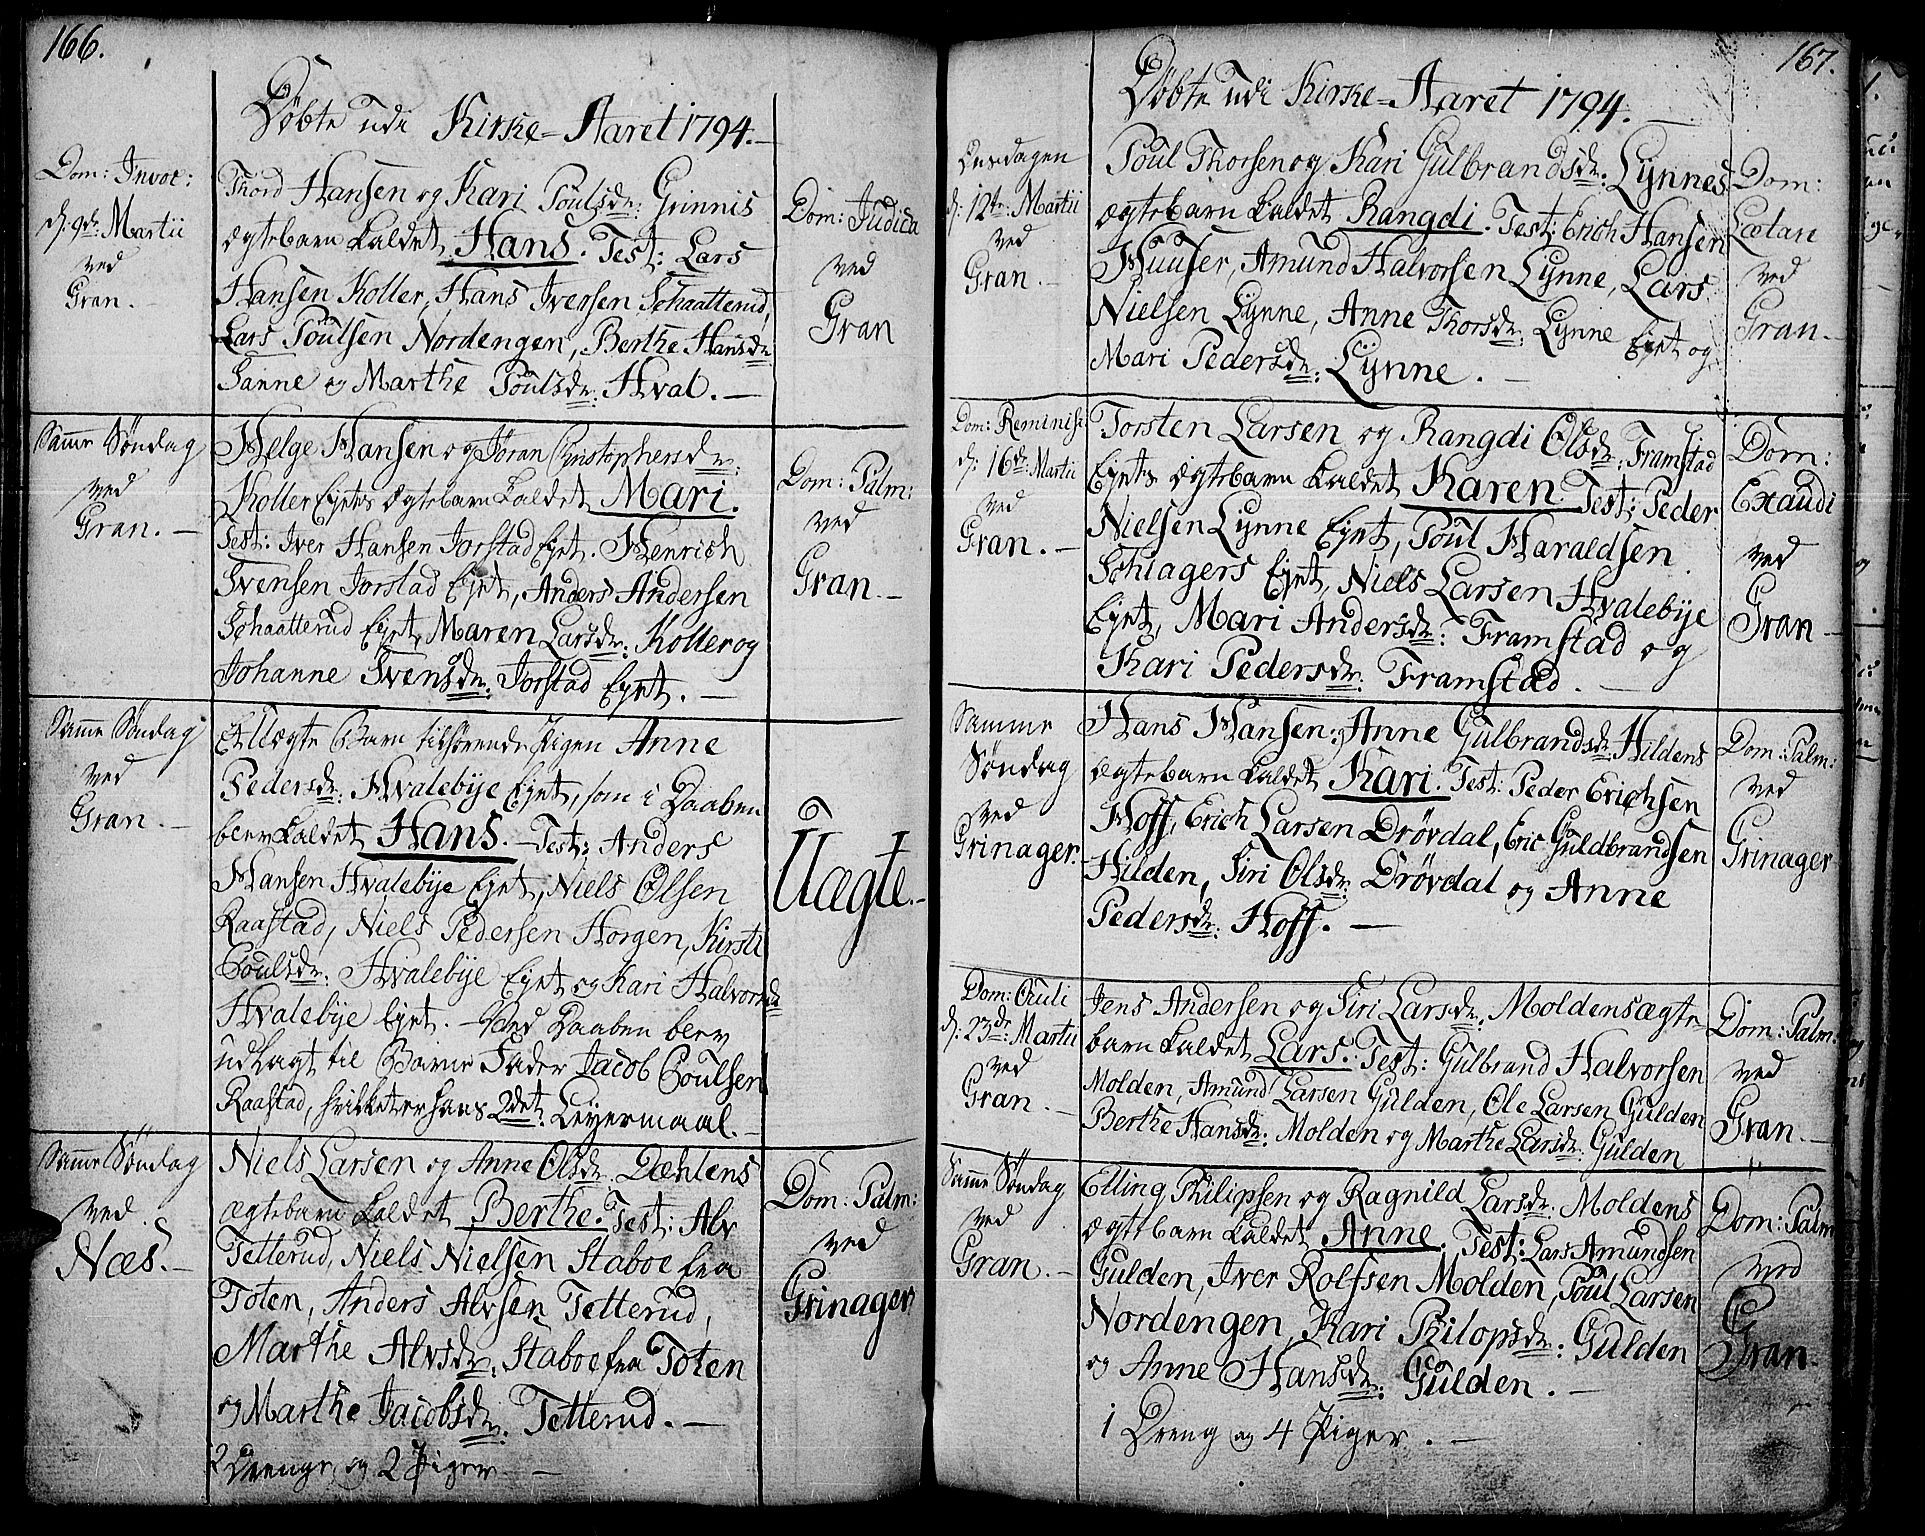 166.
Döbte udi Kirke-Aaret 1794.
Dom: Invoc:
d: 9de Martii
ved
Gran.
Thord Hansen og Kari Poulsdr: Grinnis
ægtebarn kaldet Hans. Test: Lars
Hansen Koller, Hans Iversen Schaatterud,
Lars Poulsen Nordengen, Berthe Hansdr
Sanne og Marthe Poulsdr: Hval.
Dom: Judica
ved
Gran
Samme Søndag
ved
Gran.
Helge Hansen og Jøran Christophersdr:
Koller Eyets ægtebarn kaldet Mari.
Test: Iver Hansen Jorstad Eyet. Henrich
Svensen Jorstad Eyet, Anders Andersen
Schaatterud Eyet, Maren Larsdr: Koller og
Johanne Svensdr: Jorstad Eyet.
Dom: Palm:
ved
Gran.
Samme Søndag
ved
Gran.
Et Uægte Barn tilhørende Pigen Anne
Pedersdr: Hvalebye Eyet, som i Daaben
blev kaldet Hans. Test: Anders
Hansen Hvalebye Eyet, Niels Olsen
Raastad, Niels Pedersen Horgen, Kirsti
Poulsdr: Hvalebye Eyet og Kari Halvorsdr
Hvalebye Eyet. Ved Daaben blev
udlagt til Barne Fader Jacob Poulsen
Raastad, hvilket er hans 2det Leyermaal.
Uægte.
Samme Søndag
ved
Næs.
Niels Larsen og Anne Olsdr. Dæhlens
ægtebarn kaldet Berthe. Test: Alv
Tetterud, Niels Nielsen Staboe fra
Toten, Anders Alvsen Tetterud,
Marthe Alvsdr: Staboe fra Toten
og Marthe Jacobsdr: Tetterud.
2 Drenge og 2 Piger
Dom: Palm:
ved
Grinager
167.
Döbte udi Kirke-Aaret 1794.
Onsdagen
d: 12te Martii
ved
Gran.
Poul Thorsen og Kari Gulbrandsdr: Lynnes
ægtebarn kaldet Rangdi. Test: Erich Hansen
Huuser, Amund Halvorsen Lynne, Lars
Nielsen Lynne, Anne Thorsdr: Lynne Eyet og
Mari Pedersdr: Lynne.
Dom:
Lætari
ved
Gran.
Dom: Reminisc
d: 16de Martii
ved
Gran.
Torsten Larsen og Rangdi Olsdr: Framstad
Eyets ægtebarn kaldet Karen. Test: Peder
Nielsen Lynne Eyet, Poul Haraldsen
Schiagers Eyet, Niels Larsen Hvalebye
Eyet, Mari Andersdr: Framstad og
Kari Pedersdr: Framstad.
Dom:
Exaudi
ved
Gran
Samme
Søndag
ved
Grinager.
Hans Hansen og Anne Gulbrandsdr Hildens
ægtebarn kaldet Kari. Test: Peder Erichsen
Hoff, Erich Larsen Drövdal, Eric Guldbrandsen
Hilden, Siri Olsdr: Drövdal og Anne
Pedersdr: Hoff.
Dom: Palm:
ved
Grinager
Dom: Oculi
d: 23de Martii
ved
Gran.
Jens Andersen og Siri Larsdr: Moldens ægte-
barn kaldet Lars. Test: Gulbrand Halvorsen
Molden, Amund Larsen Gulden, Ole Larsen Gulden
Berthe Hansdr: Molden og Marthe Larsdr: Gulden
Dom: Palm:
ved
Gran.
Samme Søndag
ved
Gran.
Elling Philipsen og Ragnild Larsdr: Moldens
ægtebarn kaldet Anne. Test: Lars Amundsen
Gulden, Iver Rolfsen Molden, Poul Larsen
Nordengen, Kari Pilopsdr: Gulden
og Anne Hansdr: Gulden.
1 Dreng og 4 Piger.
Dom: Palm
ved
Gran.